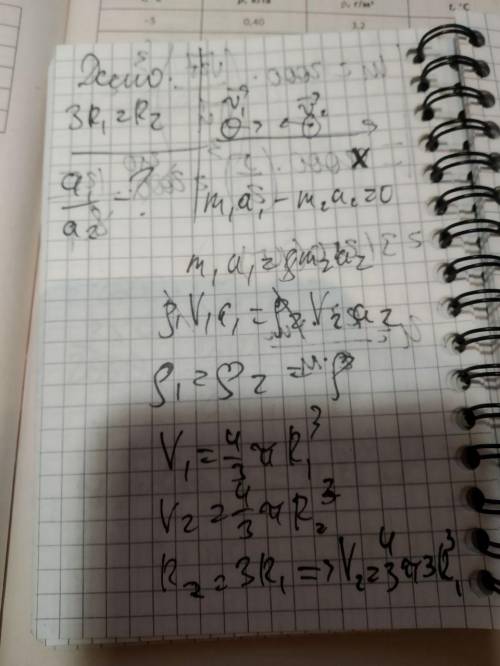 -5 0,40 3,2
t, °C
Дано:
3R₁ = R₂
v⃗₁ v⃗₂
x
a₁/a₂ - ?
m₁a₁ - m₂a₂ = 0
m₁a₁ = m₂a₂
ρ₁V₁a₁ = ρ₂V₂a₂
ρ₁ = ρ₂ = ρ
V₁ = 4/3 π R₁³
V₂ = 4/3 π R₂³
R₂ = 3R₁ => V₂ = 4/3 π 3R₁³